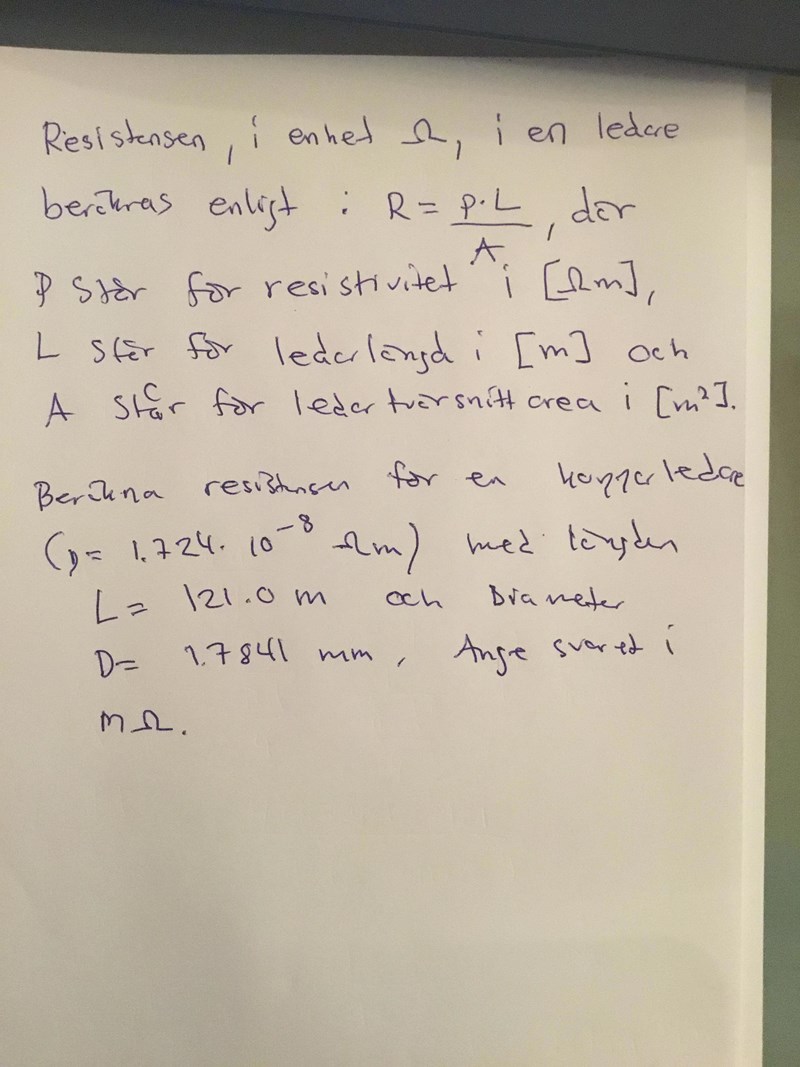 Resistansen, i enhet Ω, i en ledare
beräknas enligt : R = ρ·L / A, där
ρ står för resistivitet i [Ωm],
L står för ledarlängd i [m] och
A står för ledartvärsnittarea i [m²].
Beräkna resistansen för en kopparledare
(ρ = 1.724 · 10⁻⁸ Ωm) med längden
L = 121.0 m och Diameter
D = 1.7841 mm, Ange svaret i
mΩ.